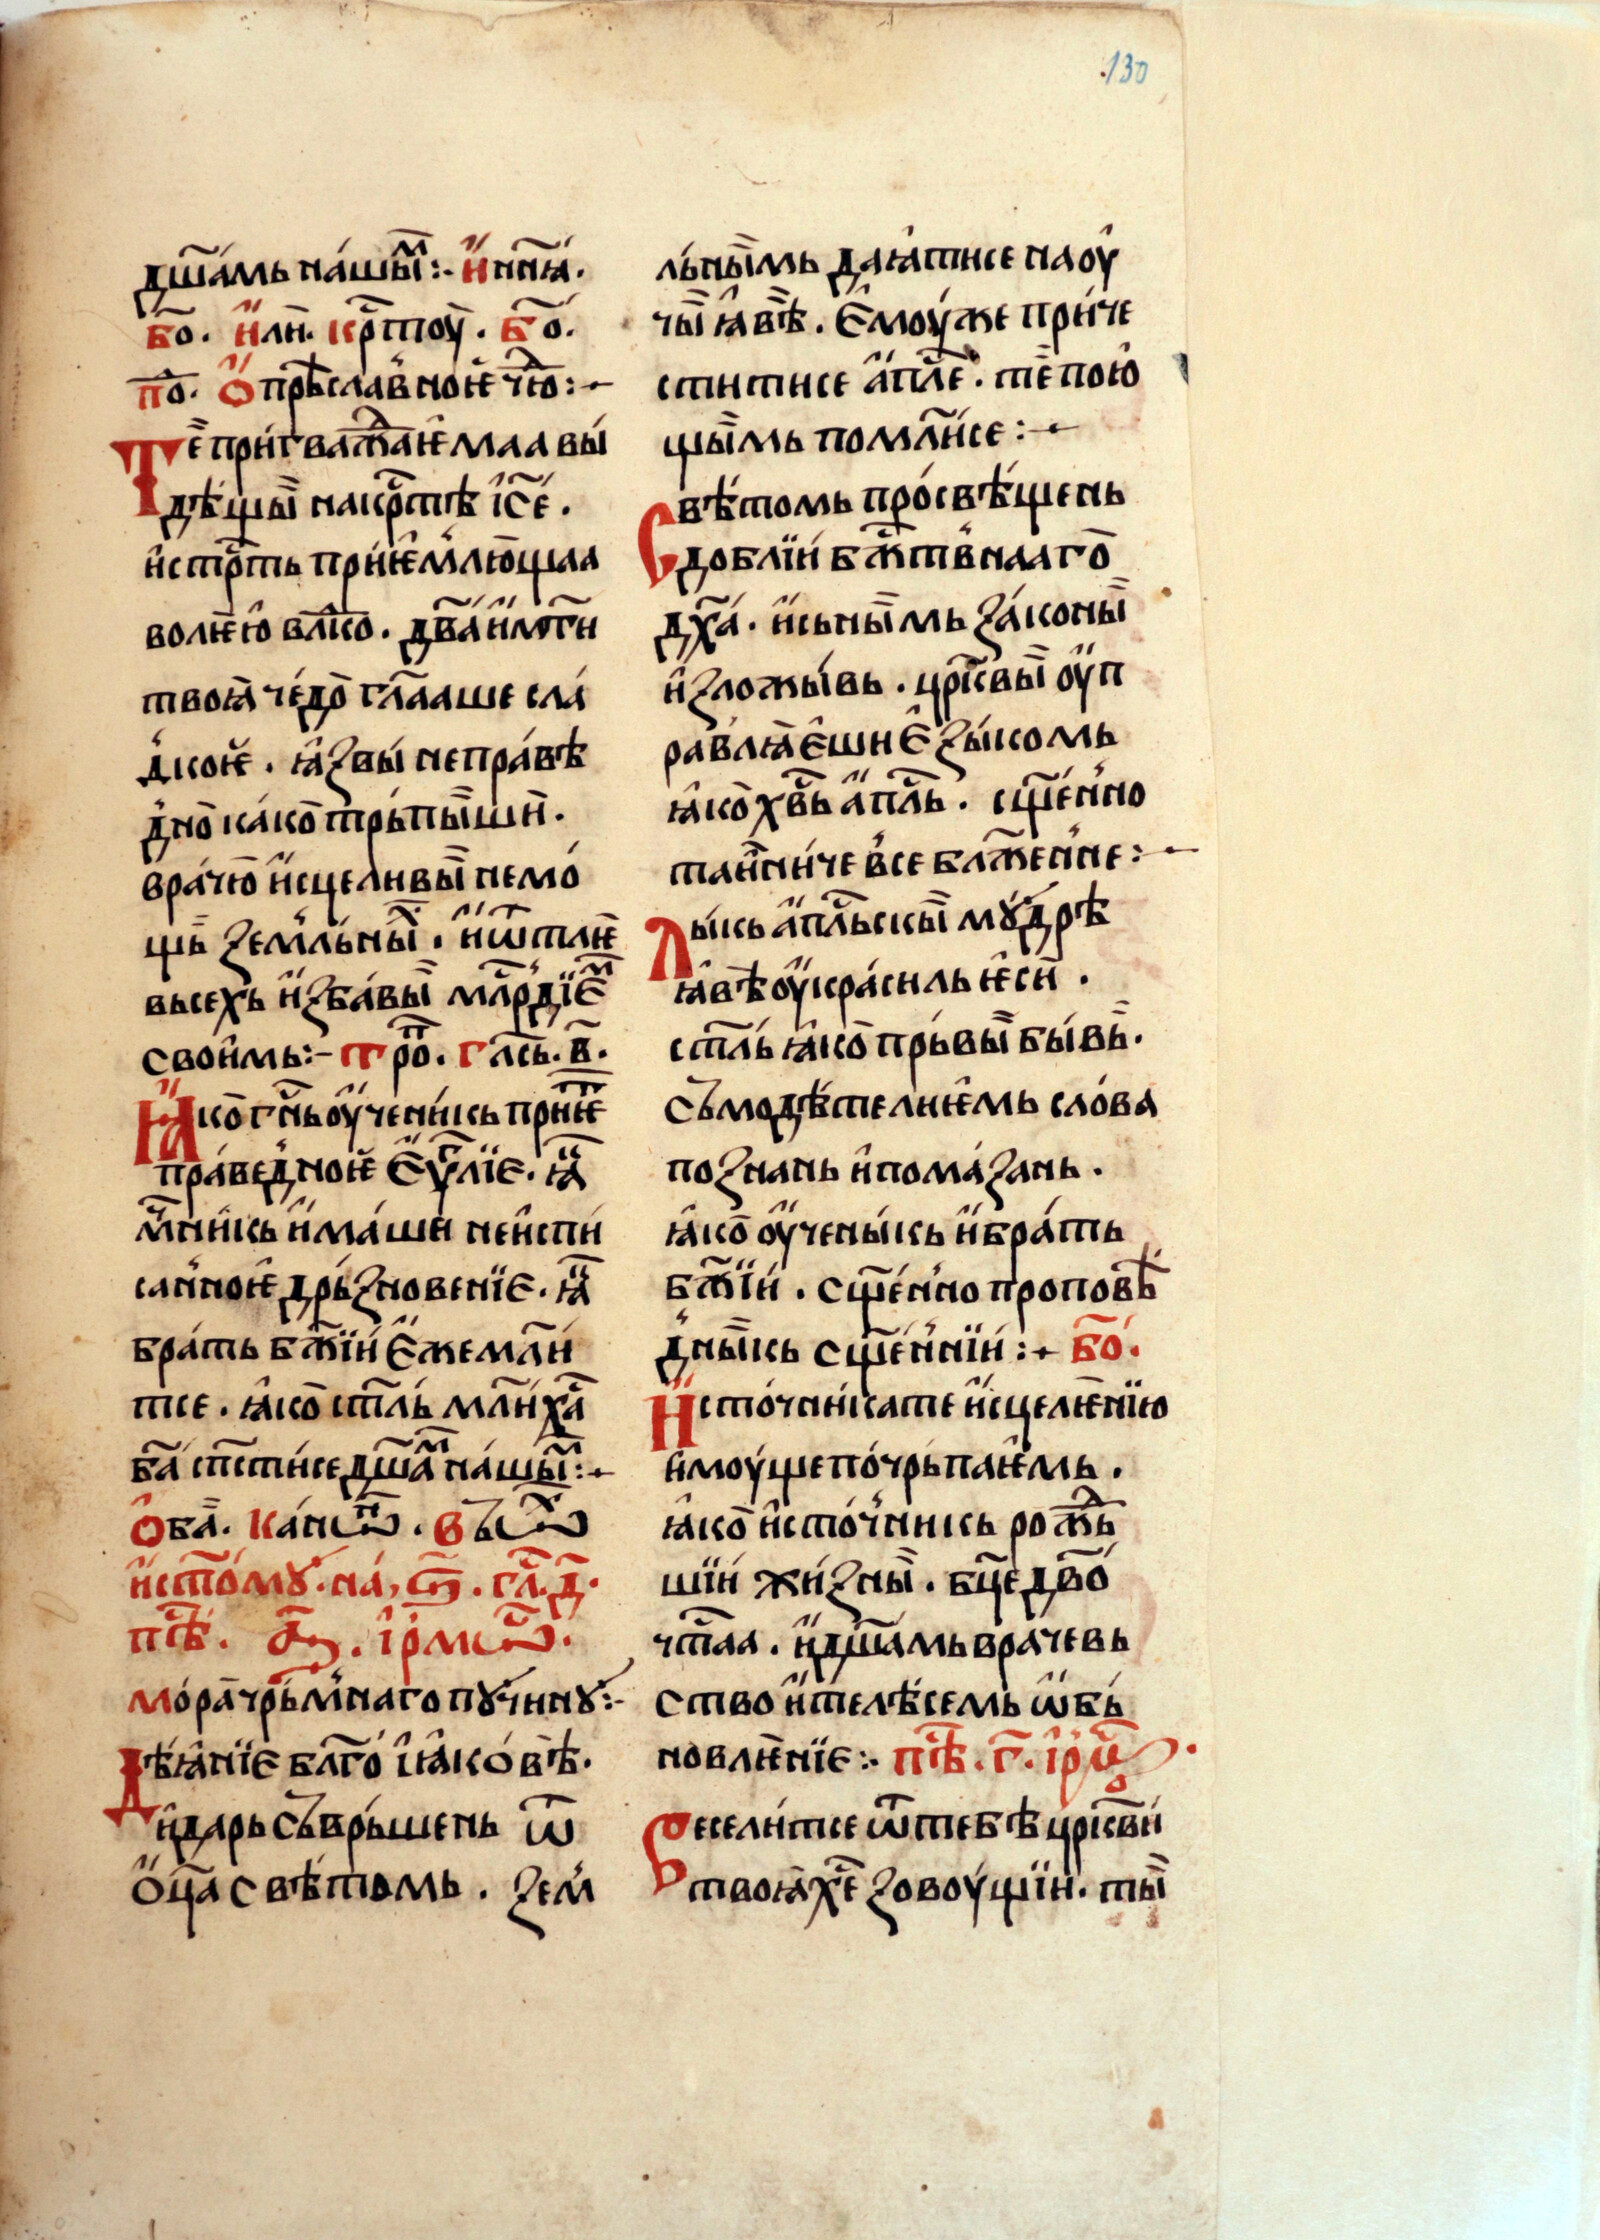 130
дш҃амь нашы҃м :· и нн҃ꙗ .
бо҃ . или . кр҃тоу . бо҃ .
по҃ . ѡ прѣславное чю҃д :·
Те пригважаѥмаа вы
дѣщы на кр҃тѣ іс҃е .
и стр҃ть приѥмлющаа
волѥю влк҃о . дв҃а и мт҃и
твоꙗ чедо гл҃ааше сла
дкоѥ . ꙗзвы неправѣ
дно како трьпыши .
врачю исцеливы немо
щь земльных . и ѿ тлѥ
вьсехь избавы млр҃дїем
своимь :· Тро҃п . гла҃сь . в҃ .
Ꙗко гн҃ь оученикь приѥт
праведноѥ еѵ҃лїе . ꙗ҃к
мч҃никь имаши неиспи
санноѥ дрьзновенїе . ꙗ҃к
брать бж҃їи еже мл҃и
тсе . ꙗко ст҃ль мл҃и ха҃
ба҃ сп҃стисе дш҃ам нашым :·
Оба . кано҃н . въ ѻ҃х
и ст҃омꙋ . на , ѕ҃ . гл҃ . д҃ .
пѣ҃с . а҃ . ірмѡ҃с .
Мора чрьмнаго пꙋчинꙋ :·
Дѣꙗнїе бл҃го іꙗковѣ .
и дарь съврьшень ѿ
оц҃а свѣтомь . зем
льнымь даꙗтисе наоу
чы ꙗвѣ . Емоу же приче
ститисе апл҃е . те пою
щымь помл҃исе :·
Свѣтомь просвѣщень
доблїи бж҃твнааго
дх҃а . и сьнымь законы
изложывь . цр҃квы оуп
равлꙗеши езыкомь
ꙗко хв҃ь апл҃ь . сщ҃енно
таинниче все блж҃енне :·
Лыкь апл҃ьскы мꙋдрѣ
ꙗвѣ оукрасиль ѥси .
ст҃ль ꙗко прьвы бывь .
съмодѣтелиѥмь слова
познань и помазань .
ꙗко оученыкь и брать
бж҃їи . сщ҃енно проповѣ
дныкь сщ҃еннїи :· бо҃ .
Источника те исцелѥнїю
имоуще почрьпаѥмь .
ꙗко источникь рожд҃ь
шїи жизны . бц҃е дв҃о
чт҃аа . и дш҃амь врачевь
ство и телѣсемь ѡбь
новлѥнїе :· пѣ҃с . г҃ . ірмо҃с .
Веселитсе ѿ тебѣ цр҃кви
твоꙗ хе҃ зовоущїи . ты